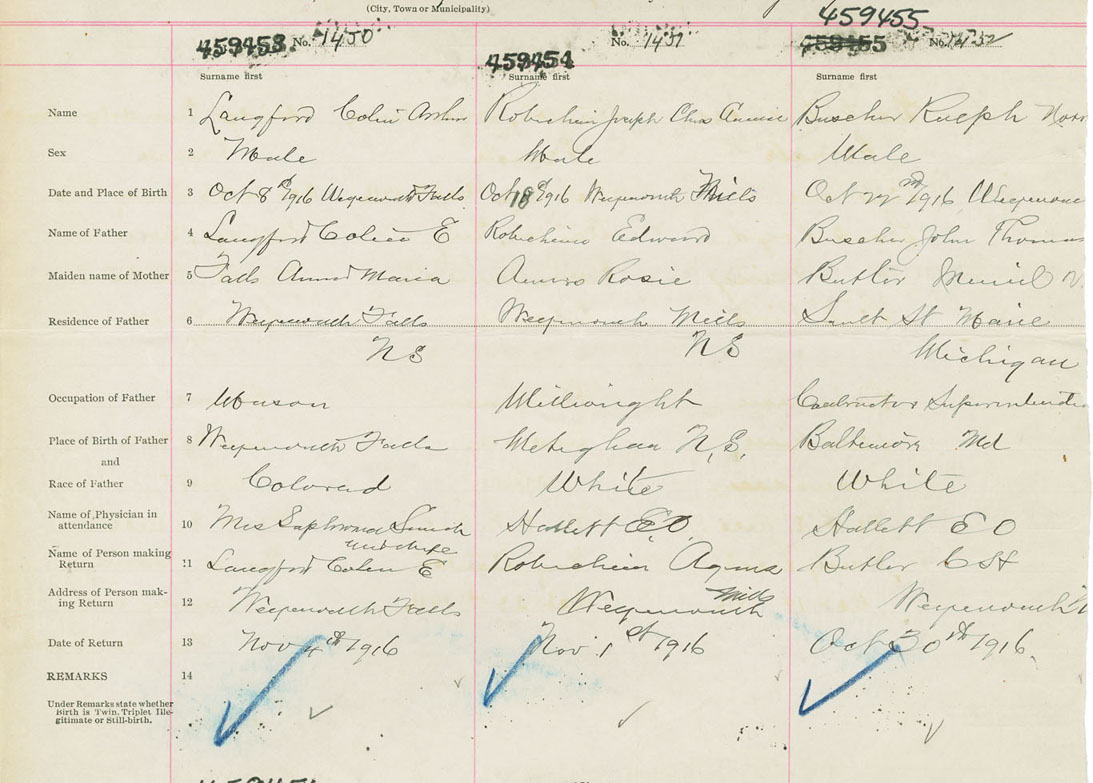 (City, Town or Municipality)
459453 No. 1450
459454 No. 1451
459455
459455 No. 1452
Surname first
Surname first
Surname first
Name 1 Langford Colin Arthur
Joseph Chas
Buscher Ralph
Sex 2 Male
Male
Male
Date and Place of Birth 3 Oct 8th 1916 Weymouth Falls
Oct 18th 1916 Weymouth Mills
Oct 22nd 1916
Name of Father 4 Langford Colin E
Edward
Buscher John Thomas
Maiden name of Mother 5 Falls Maria
Rosie
Butler
Residence of Father 6 Weymouth Falls
NS
Weymouth Mills
NS
Sault St Marie
Michigan
Occupation of Father 7 Mason
Millwright
Place of Birth of Father 8 Weymouth Falls
Meteghan N.S.
Baltimore Md
and
Race of Father 9 Colored
White
White
Name of Physician in attendance 10 Mrs
midwife
Hallett E.O.
Hallett E O
Name of Person making Return 11 Langford Colin E
Butler
Address of Person making Return 12 Weymouth Falls
Weymouth Mills
Weymouth
Date of Return 13 Nov 4th 1916
Nov 1st 1916
Oct 30th 1916.
REMARKS 14
Under Remarks state whether
Birth is Twin, Triplet Ille-
gitimate or Still-birth.